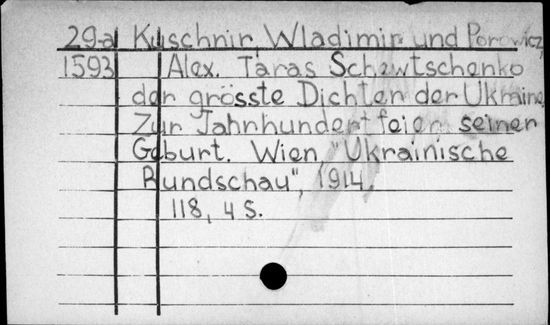 29-a Kuschnir, Wladimir und Popowicz,
1593 Alex. Taras Schewtschenko
der grösste Dichter der Ukraine,
Zur Jahrhundertfeier seiner
Geburt. Wien, "Ukrainische
Rundschau", 1914,
118, 4 S.